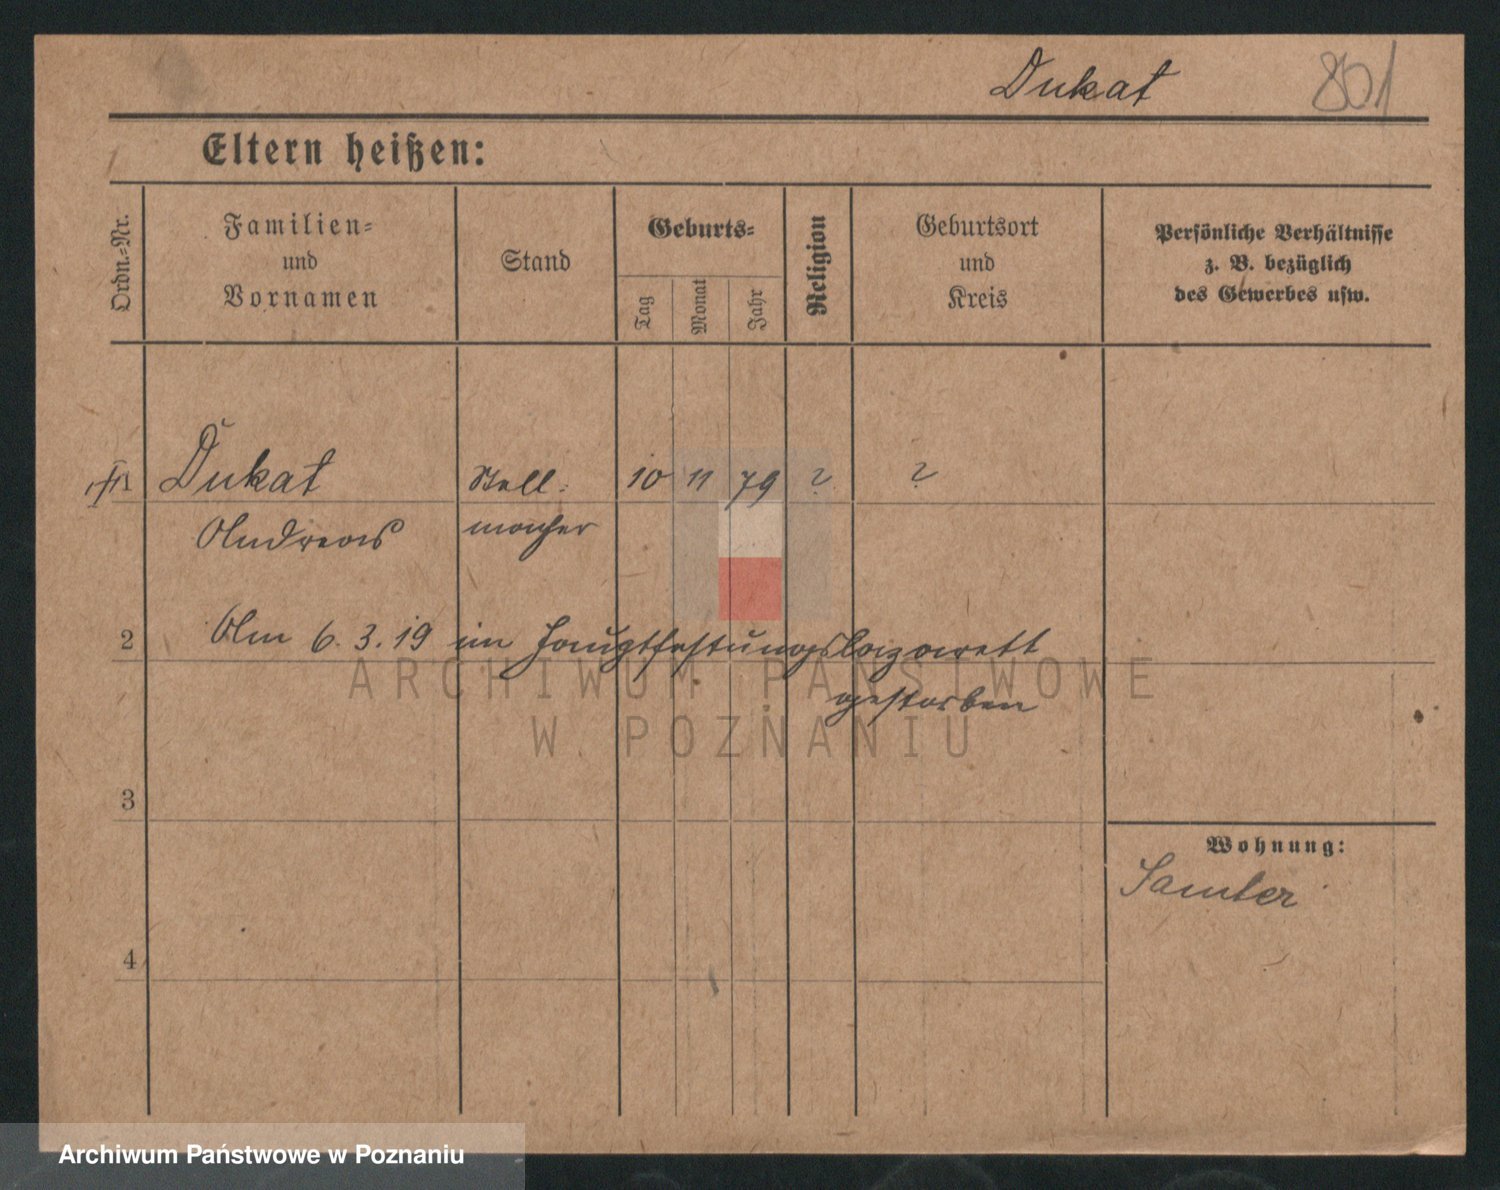 Dukat 801
Eltern heißen:
Ordn.-Nr.
Familien-
und
Vornamen
Stand
Geburts-
Tag
Monat
Jahr
Religion
Geburtsort
und
Kreis
Persönliche Verhältnisse
z. B. bezüglich
des Gewerbes usw.
1 Dukat Stell- 10 11 79 ? ?
Andreas macher
2 Am 6.3.19 im Hauptfestungslazarett
gestorben
ARCHIWUM PAŃSTWOWE
W POZNANIU
3
Wohnung:
Samter
4
Archiwum Państwowe w Poznaniu